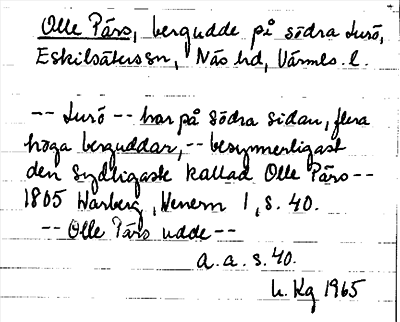 Olle Pärs, bergudde på södra Lurö,
Eskilsäters sn, Näs hd, Värmls. l.
-- Lurö -- har på Södra sidan, flera
höga berguddar, -- besynnerligast
den sydligaste kallad Olle Pärs --
1805 Warberg, Wenern 1, s. 40.
-- Olle Pärs udde --
a. a. s. 40.
1965